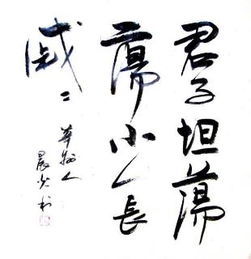 君子坦蕩
蕩小人長
戚〻